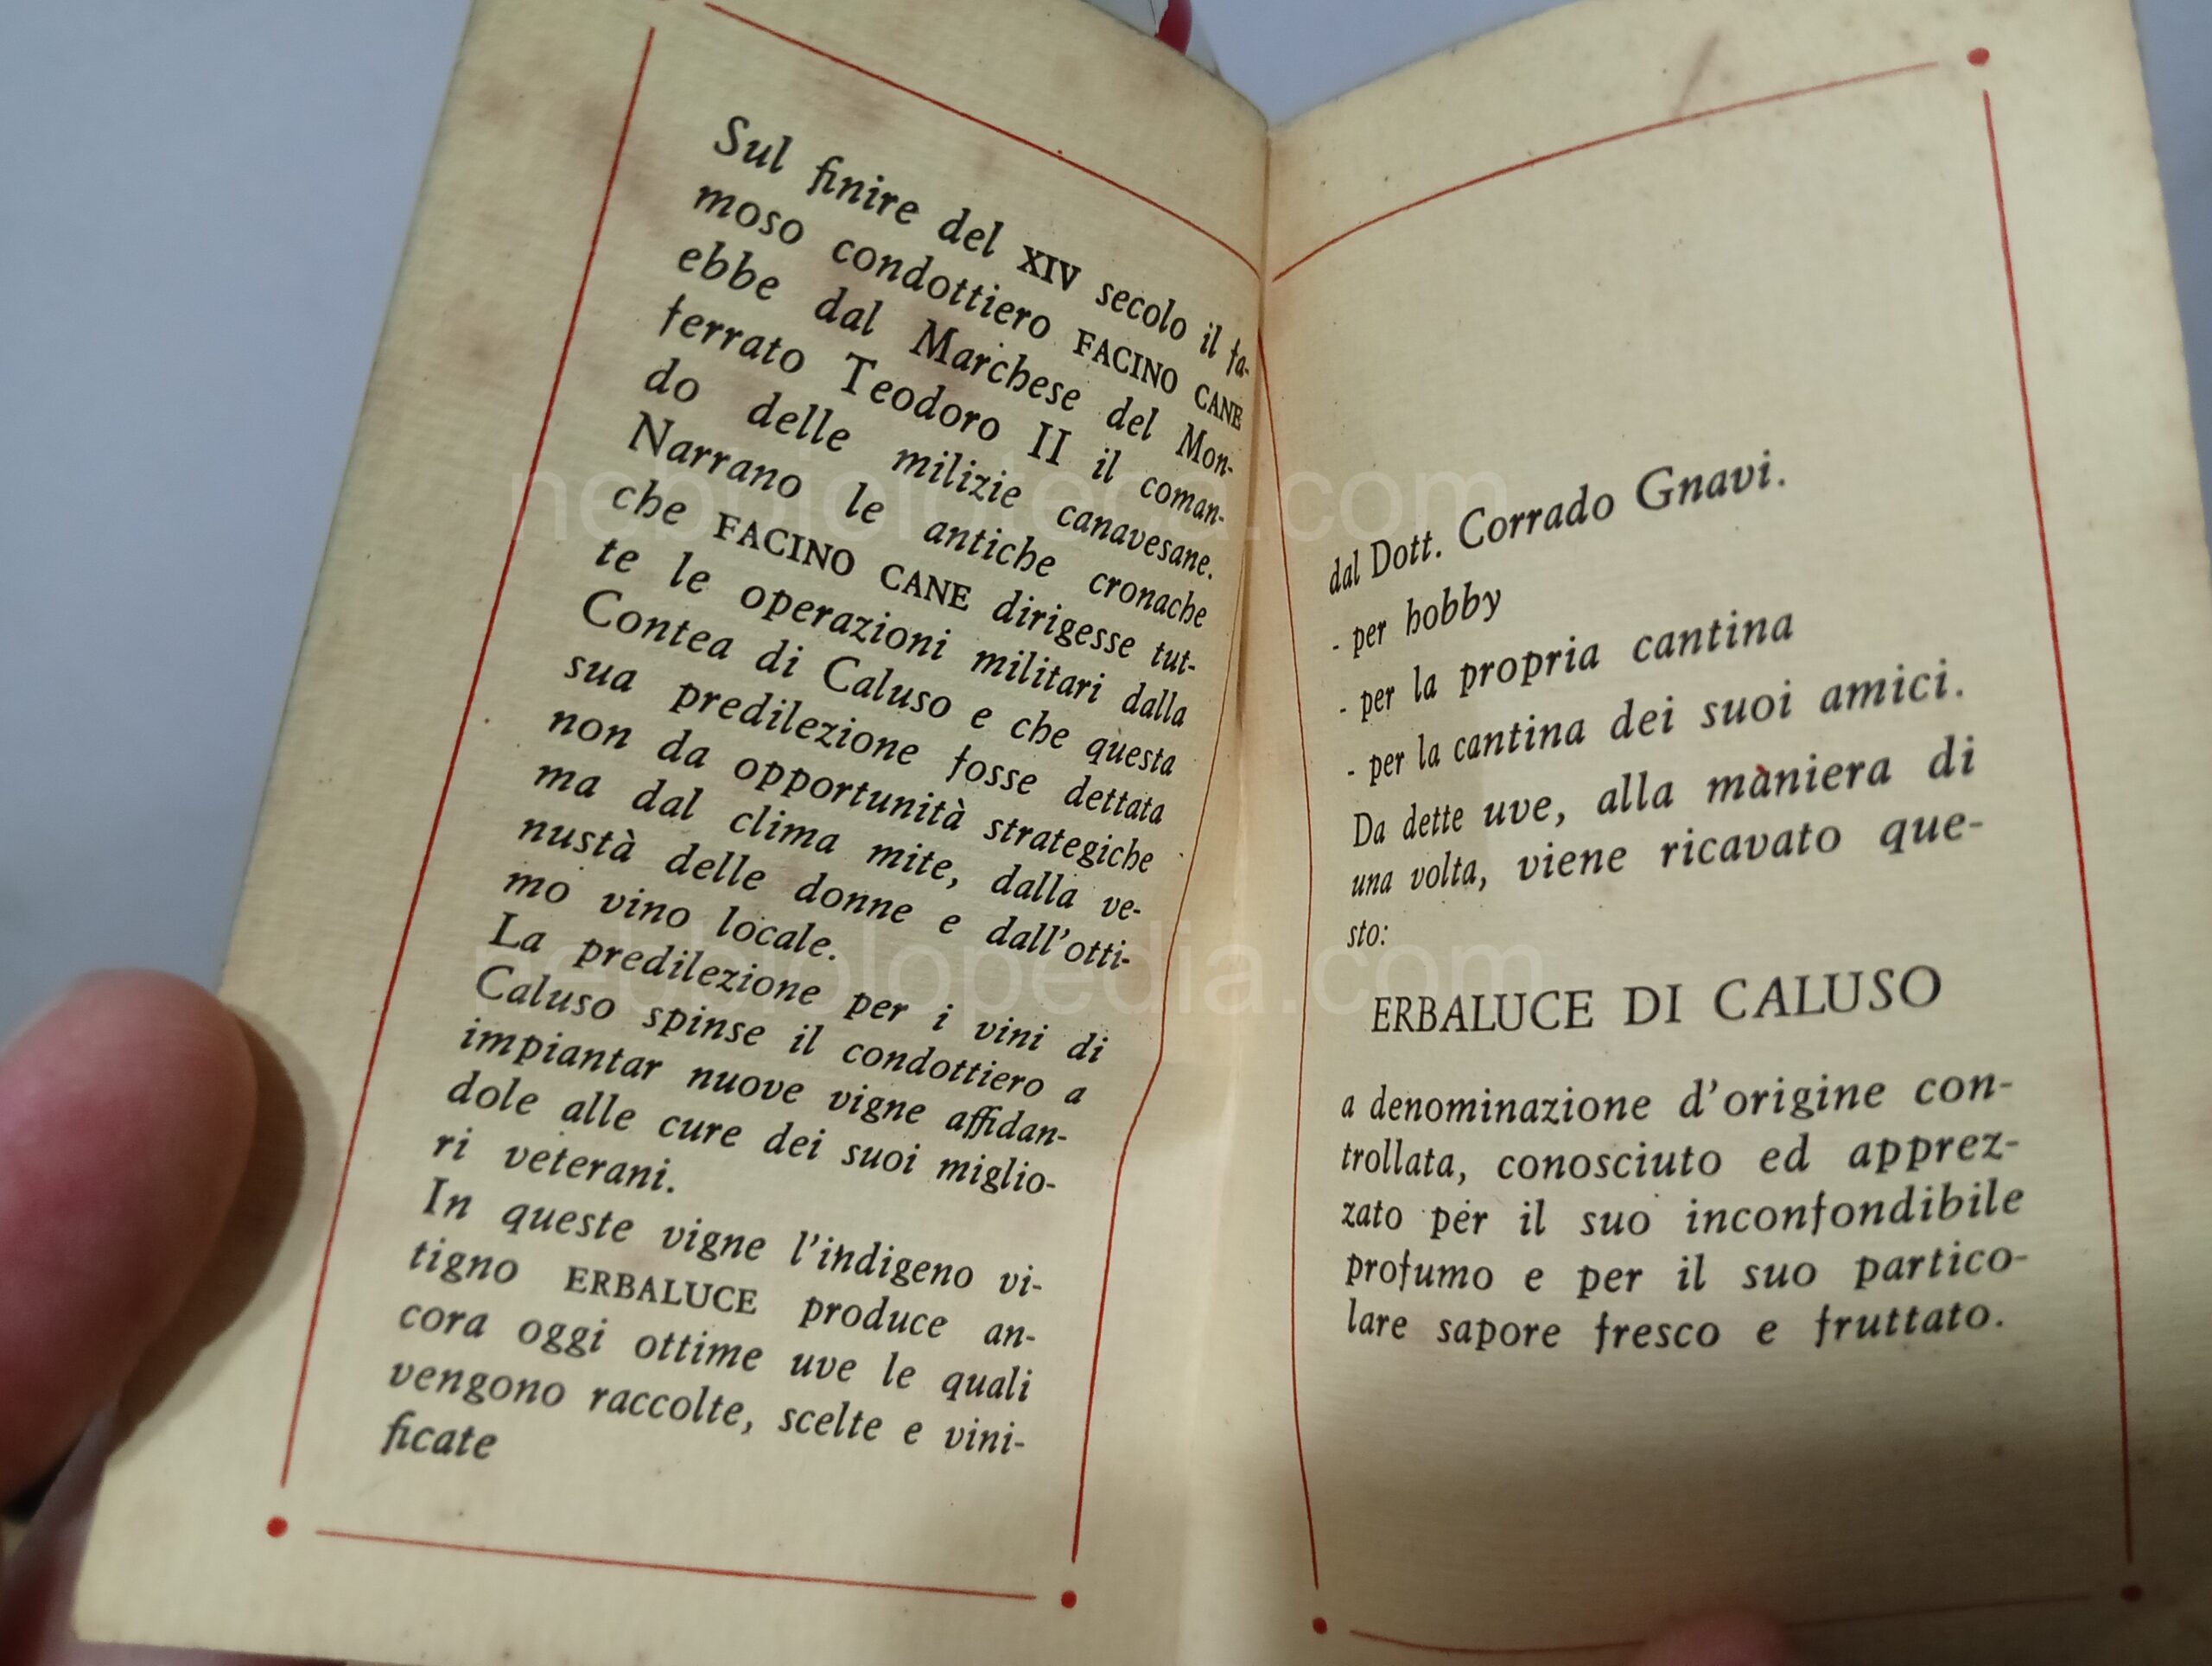 Sul finire del XIV secolo il fa-
moso condottiero FACINO CANE
ebbe dal Marchese del Mon-
ferrato Teodoro II il coman-
do delle milizie canavesane.
Narrano le antiche cronache
che FACINO CANE dirigesse tut-
te le operazioni militari dalla
Contea di Caluso e che questa
sua predilezione fosse dettata
non da opportunità strategiche
ma dal clima mite, dalla ve-
nustà delle donne e dall'otti-
mo vino locale.
La predilezione per i vini di
Caluso spinse il condottiero a
impiantar nuove vigne affidan-
dole alle cure dei suoi miglio-
ri veterani.
In queste vigne l'indigeno vi-
tigno ERBALUCE produce an-
cora oggi ottime uve le quali
vengono raccolte, scelte e vini-
ficate
dal Dott. Corrado Gnavi.
- per hobby
- per la propria cantina
- per la cantina dei suoi amici.
Da dette uve, alla maniera di
una volta, viene ricavato que-
sto:
ERBALUCE DI CALUSO
a denominazione d'origine con-
trollata, conosciuto ed apprez-
zato per il suo inconfondibile
profumo e per il suo partico-
lare sapore fresco e fruttato.
nebbioloteca.com
nebbiolopedia.com